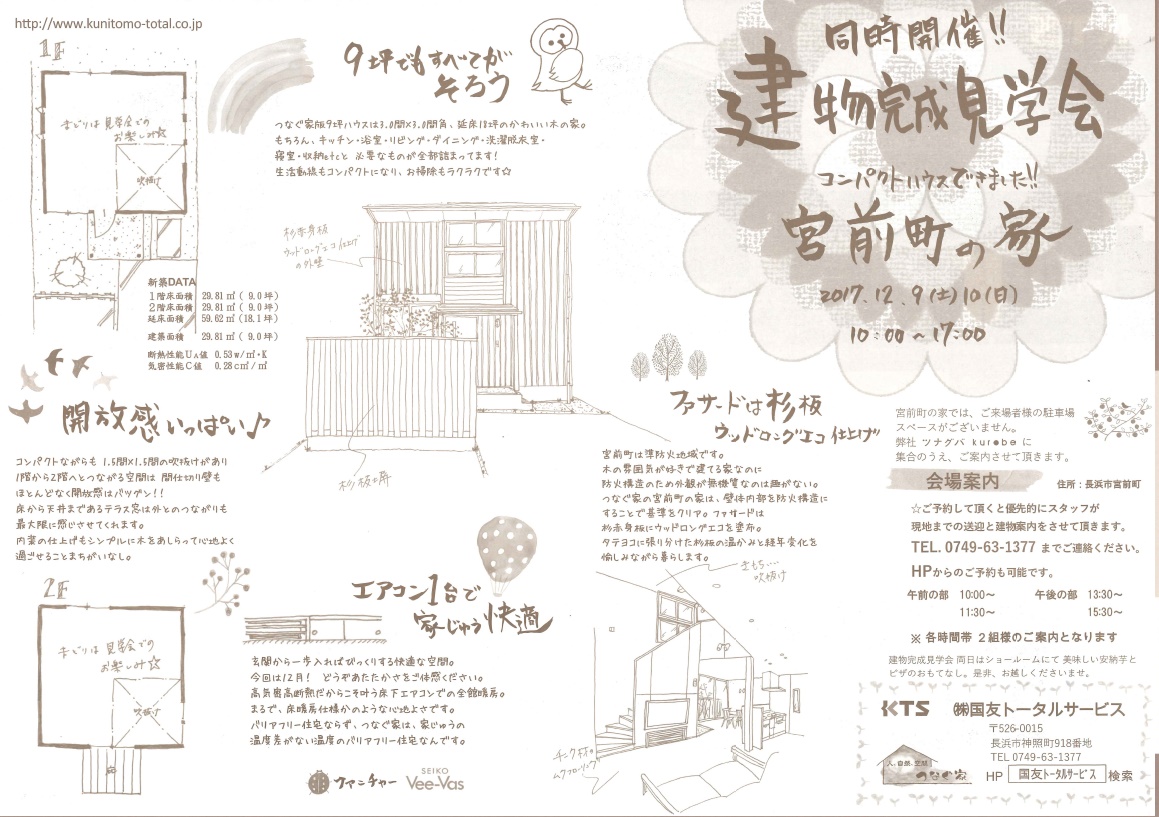 http://www.kunitomo-total.co.jp
1F
まどりは見学会での
お楽しみ☆
吹抜け
新築DATA
1階床面積 29.81㎡( 9.0坪)
2階床面積 29.81㎡( 9.0坪)
延床面積 59.62㎡(18.1坪)
建築面積 29.81㎡( 9.0坪)
断熱性能UA値 0.53w/㎡・K
気密性能C値 0.28c㎡/㎡
9坪でもすべてが
そろう
つなぐ家版9坪ハウスは3.0間×3.0間角、延床18坪のかわいい木の家。
もちろん、キッチン・浴室・リビング・ダイニング・洗濯脱衣室・
寝室・収納etcと 必要なものが全部詰まってます!
生活動線もコンパクトになり、お掃除もラクラクです☆
杉赤身板
ウッドロングエコ仕上げ
の外壁
杉板塀
開放感いっぱい♪
コンパクトながらも 1.5間×1.5間の吹抜けがあり
1階から2階へとつながる空間は 間仕切り壁も
ほとんどなく開放感はバツグン!!
床から天井まであるテラス窓は外とのつながりも
最大限に感じさせてくれます。
内装の仕上げもシンプルに木をあしらって心地よく
過ごせることまちがいなし。
2F
まどりは見学会での
お楽しみ☆
吹抜け
エアコン1台で
家じゅう快適
玄関から一歩入ればびっくりする快適な空間。
今回は12月! どうぞあたたかさをご体感ください。
高気密高断熱だからこそ叶う床下エアコンでの全館暖房。
まるで、床暖房仕様かのような心地よさです。
バリアフリー住宅ならず、つなぐ家は、家じゅうの
温度差がない温度のバリアフリー住宅なんです。
ファニチャー
SEIKO
Vee-Vas
ファサードは杉板
ウッドロングエコ仕上げ
宮前町は準防火地域です。
木の雰囲気が好きで建てる家なのに
防火構造のため外観が無機質なのは趣がない。
つなぐ家の宮前町の家は、壁体内部を防火構造に
することで基準をクリア。ファサードは
杉赤身板にウッドロングエコを塗布。
タテヨコに張り分けた杉板の温かみと経年変化を
愉しみながら暮らします。
きもちいい
吹抜け
チーク材の
ムクフローリング
同時開催!!
建物完成見学会
コンパクトハウスできました!!
宮前町の家
2017.12.9(土)10(日)
10:00〜17:00
宮前町の家では、ご来場者様の駐車場
スペースがございません。
弊社 ツナグバ kurobei に
集合のうえ、ご案内させて頂きます。
会場案内 住所:長浜市宮前町
☆ご予約して頂くと優先的にスタッフが
現地までの送迎と建物案内をさせて頂きます。
TEL. 0749-63-1377 までご連絡ください。
HPからのご予約も可能です。
午前の部 10:00〜 午後の部 13:30〜
11:30〜 15:30〜
※ 各時間帯 2組様のご案内となります
建物完成見学会 両日はショールームにて 美味しい安納芋と
ピザのおもてなし。是非、お越しくださいませ。
KTS ㈱国友トータルサービス
〒526-0015
長浜市神照町918番地
TEL 0749-63-1377
人、自然、空間
つなぐ家
HP 国友トータルサービス 検索